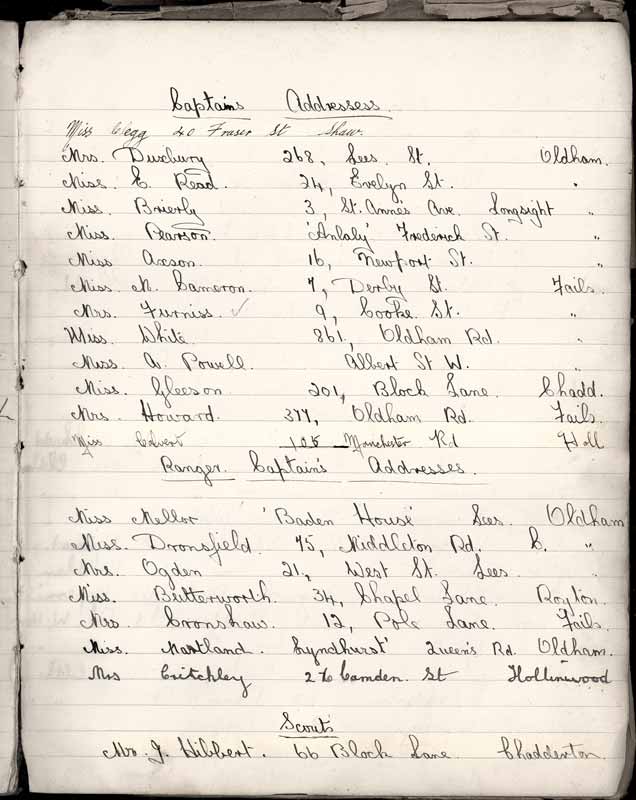 Captains Addressess.
Miss Clegg 20 Fraser St Shaw.
Mrs. Duxbury 268, Lees. St. Oldham.
Miss. E. Read. 24, Evelyn St. "
Miss. Brierly 3, St. Annes Ave. Longsight "
Miss. Pearson. 'Anlaly' Frederich St. "
Miss Axson. 16, Newport St. "
Miss. M. Cameron. 7, Derby St. Fails.
Mrs. Furniss. ✓ 9, Cooke St. "
Miss. White 861, Oldham Rd. "
Miss. A. Powell. Albert St W. "
Miss. Gleeson 201, Block Lane. Chadd.
Mrs. Howard. 377, Oldham Rd. Fails.
Miss Calvert 105 Manchester Rd Holl
Ranger. Captain's Addresses.
Miss Mellor 'Baden House' Lees. Oldham
Miss. Dronsfield. 75, Middleton Rd, C. "
Mrs. Ogden 21, West St. Lees. "
Miss. Butterworth. 34, Chapel Lane. Royton.
Mrs Cronshaw. 12, Pole Lane. Fails.
Miss. Martland. Lyndhurst' Queen's Rd. Oldham.
Mrs Critchley 27 Camden. St Hollinwood
Scouts
Mr. J. Hibbert. 66 Block Lane. Chadderton.